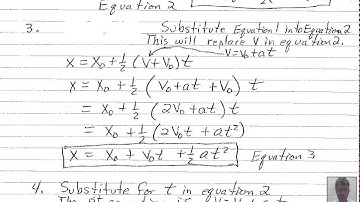 Equation 2
3. Substitute Equation 1 into Equation 2
This will replace V in equation 2.
V=V₀+at
x = x₀ + ½ (V+V₀)t
x = x₀ + ½ (V₀+at +V₀) t
= x₀ + ½ (2V₀+at) t
= x₀ + ½ (2V₀t + at²)
x = x₀ + V₀t + ½ at² Equation 3
4. Substitute for t in equation 2